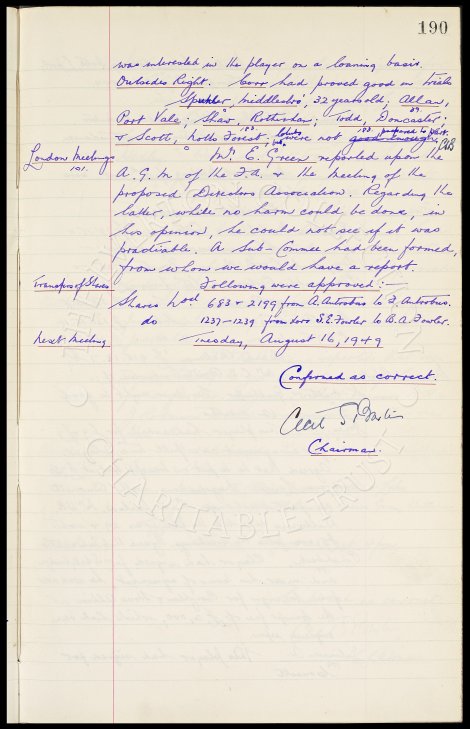 190
was interested in the player on a loaning basis.
Outsides Right. Corr had proved good in trials
Spuhler, Middlesbro', 32 years old; Allan,
Port Vale; Shaw, Rotherham; Todd, Doncaster;
& Scott, Notts Forest; were not good enough,
prepared to part.
London Meetings
101.
Mr. E. Green reported upon the
A.G.M. of the F.A. & the Meeting of the
proposed Directors Association. Regarding the
latter, while no harm could be done, in
his opinion, he could not see if it was
practiable. A Sub-Commee had been formed,
from whom we would have a report.
Transfers of Shares
Following were approved:-
Shares Nos 683 & 2199 from A. Antrobus to F. Antrobus.
do 1237-1239 from S.E. Fowler to B.A. Fowler.
Next Meeting
Tuesday, August 16, 1949
Confirmed as correct.
Chairman.
CHARITABLE TRUST